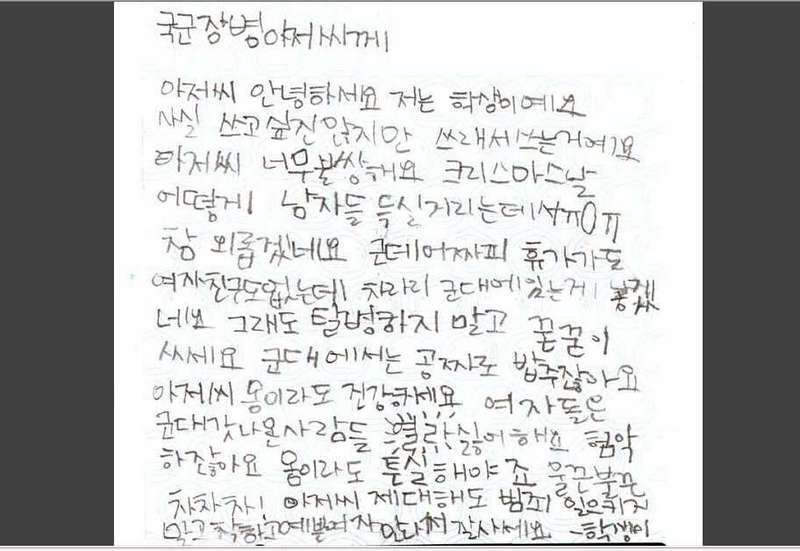 국군장병아저씨께
아저씨 안녕하세요 저는 학생이예요
사실 쓰고싶진않지만 쓰래서쓰는거여요
아저씨 너무불쌍해요 크리스마스날
어떻게 남자들 득실거리는데서ㅠ0ㅠ
참 외롭겠네요 군데어짜피 휴가가도
여자친구도없는데 차라리 군대에있는게 좋겠
네요 그래도 탈병하지 말고 꾿꾿이
싸세요 군대에서는 공짜로 밥주잖아요
아저씨 몸이라도 건강하세요 여자들은
군대갓나온사람들 별랴싫어해요 험악
하잖아요 몸이라도 튼실해야죠 울끈불끈
차차차! 아저씨 제대해도 범죄 일으키지
말고 착하고예쁜여자만나서잘사세요 -학생이